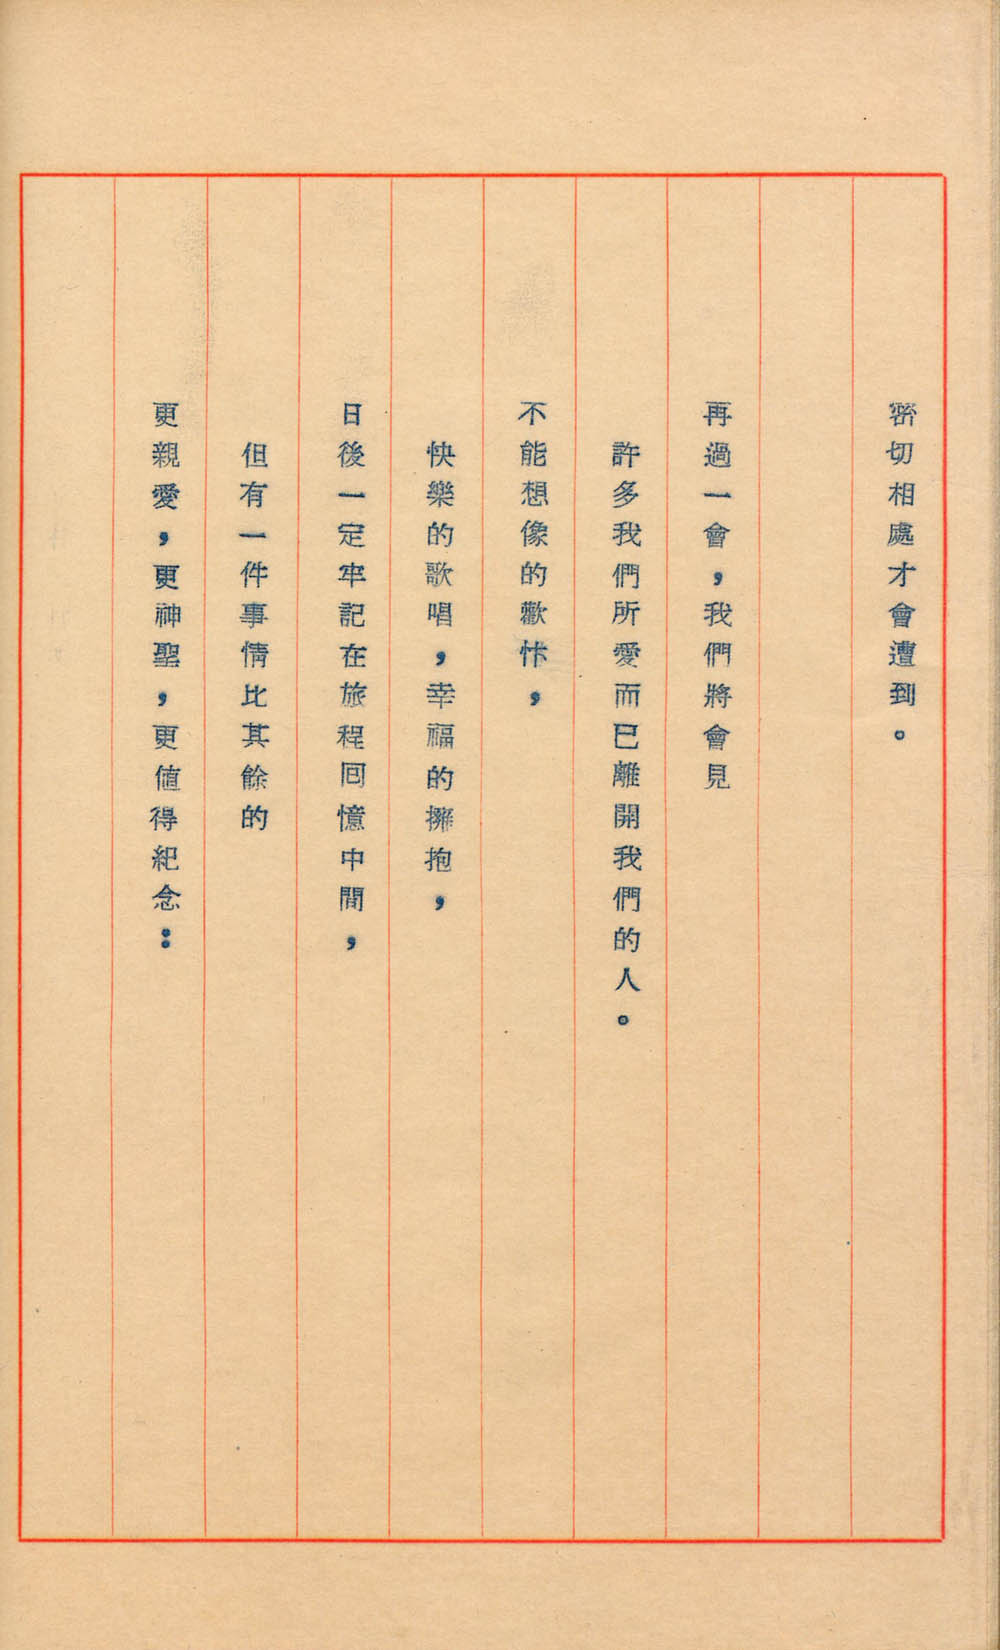 密切相處才會遭到。
再過一會，我們將會見
許多我們所愛而已離開我們的人。
不能想像的歡忭，
快樂的歌唱，幸福的擁抱，
日後一定牢記在旅程回憶中間，
但有一件事情比其餘的
更親愛，更神聖，更值得紀念：